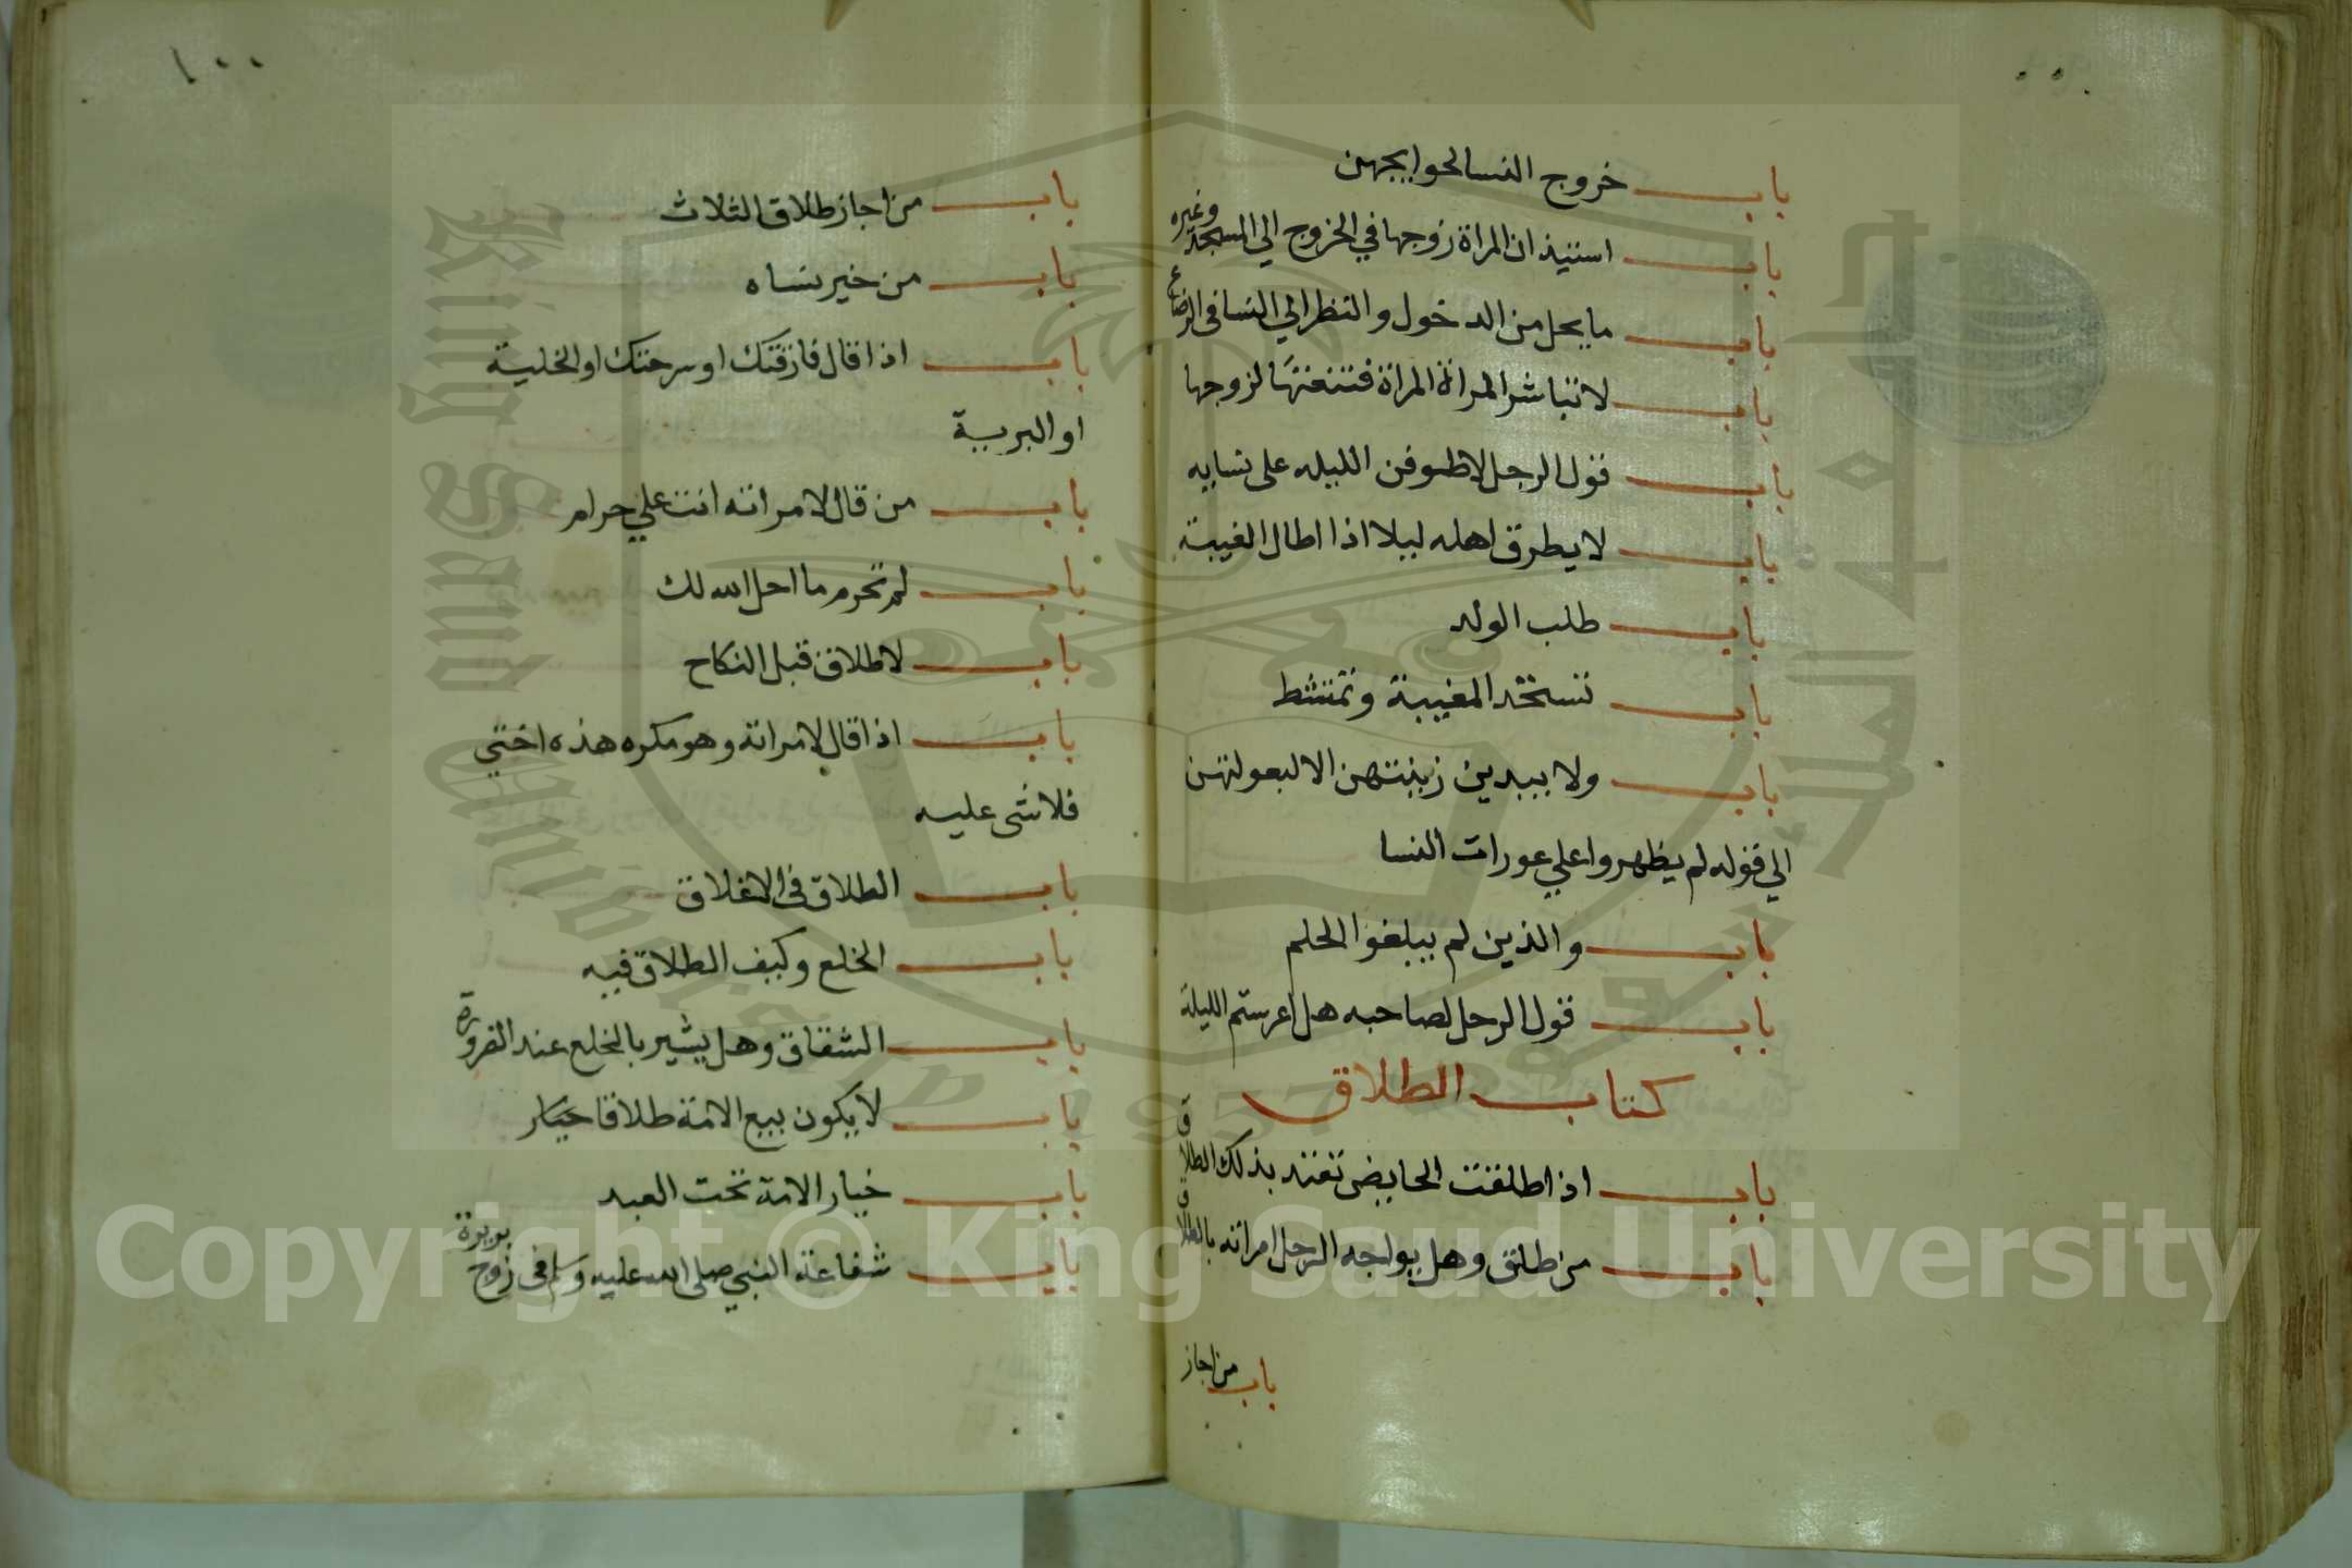 باب خروج النسا لحوايجهن
باب استيذان المراة زوجها في الخروج الي المسجد وغيره
باب ما يحل من الدخول والنظر الي النسا في الرضاع
باب لا تباشر المراة المراة فتنعتها لزوجها
باب قول الرجل لاطوفن الليله على نسايه
باب لا يطرق اهله ليلا اذا اطال الغيبة
باب طلب الولد
باب تستحد المغيبة وتمتشط
باب ولا يبدين زينتهن الا لبعولتهن
الي قوله لم يظهروا علي عورات النسا
باب والذين لم يبلغوا الحلم
باب قول الرجل لصاحبه هل اعرستم الليلة
كتاب الطلاق
باب اذا طلقت الحايض تعتد بذلك الطلاق
باب من طلق وهل يواجه الرجل امراته بالطلاق
باب من اجاز
١٠٠
باب من اجاز طلاق الثلاث
باب من خير نساه
باب اذا قال فارقتك او سرحتك او الخلية
او البرية
باب من قال لامراته انت علي حرام
باب لم تحرم ما احل الله لك
باب لا طلاق قبل النكاح
باب اذا قال لامراته وهو مكره هذه اختي
فلا شى عليه
باب الطلاق في الاغلاق
باب الخلع وكيف الطلاق فيه
باب الشقاق وهل يشير بالخلع عند الضرورة
باب لا يكون بيع الامة طلاقا
باب خيار الامة تحت العبد
باب شفاعة النبي صلى الله عليه وسلم في زوج بريرة
King Saud University
1957
Copyright © King Saud University